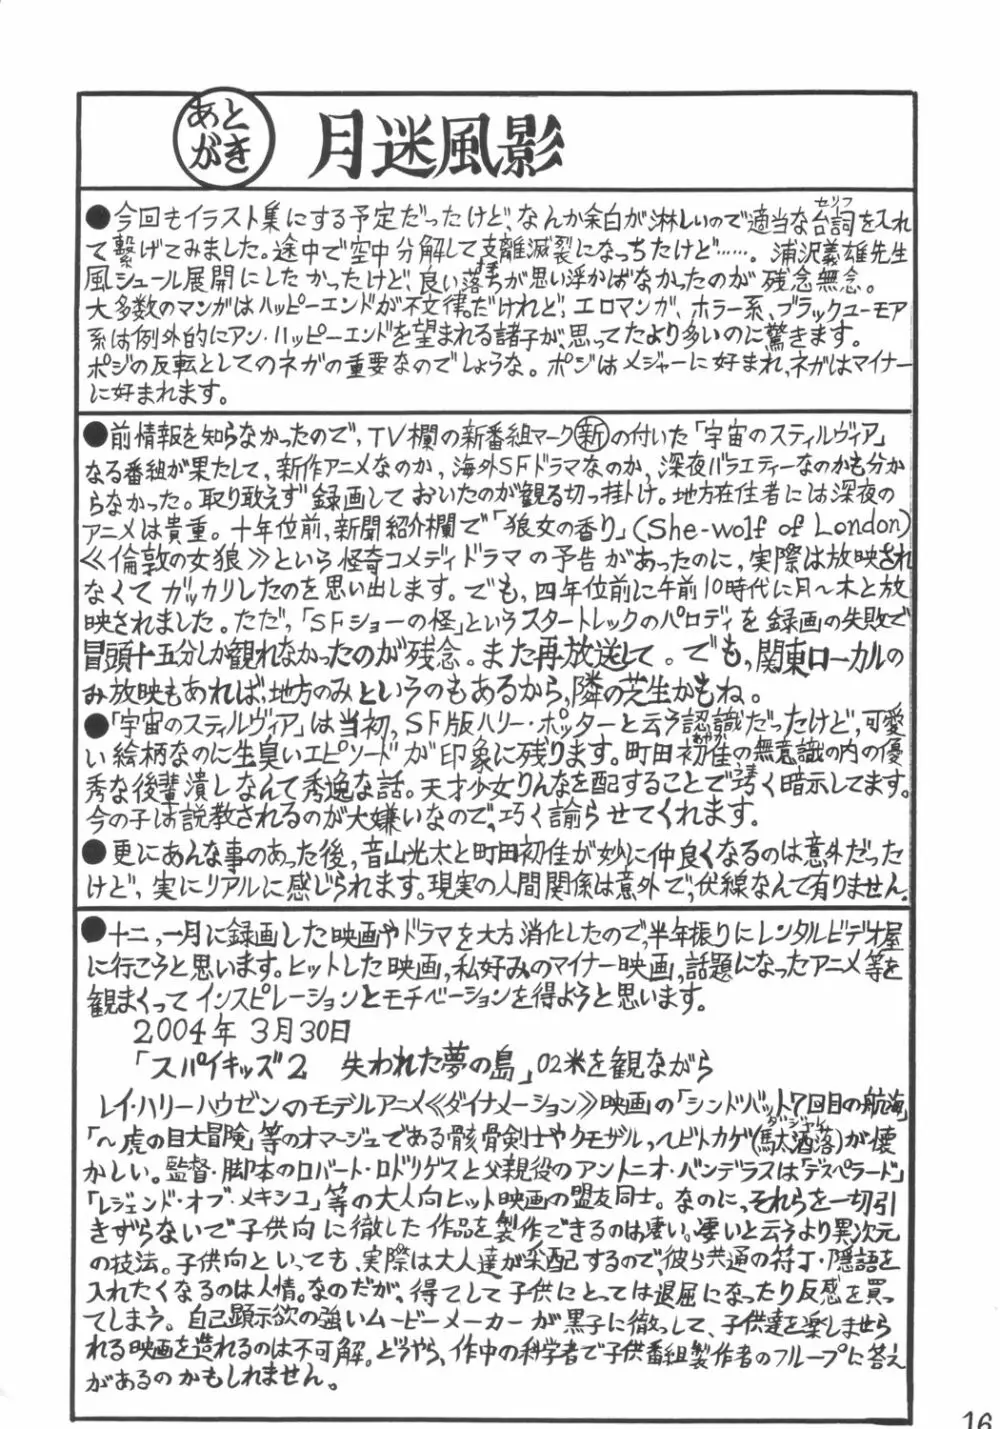 あとがき
月迷風影
●今回もイラスト集にする予定だったけど、なんか余白が淋しいので適当な台詞を入れ
て繋げてみました。途中で空中分解して支離滅裂になっちたけど……。浦沢義雄先生
風シュール展開にしたかったけど、良い落ちが思い浮かばなかったのが残念無念。
大多数のマンガはハッピーエンドが不文律。だけれど、エロマンガ、ホラー系、ブラックユーモア
系は例外的にアン・ハッピーエンドを望まれる諸子が、思ってたより多いのに驚きます。
ポジの反転としてのネガの重要なのでしょうな。ポジはメジャーに好まれ、ネガはマイナー
に好まれます。
●前情報を知らなかったので、TV欄の新番組マーク新の付いた「宇宙のスティルヴィア」
なる番組が果たして、新作アニメなのか、海外SFドラマなのか、深夜バラエティーなのかも分か
らなかった。取り敢えず録画しておいたのが観る切っ掛け。地方在住者には深夜の
アニメは貴重。十年位前、新聞紹介欄で「狼女の香り」(She-wolf of London)
≪倫敦の女狼≫という怪奇コメディドラマの予告があったのに、実際は放映され
なくてガッカリしたのを思い出します。でも、四年位前に午前10時代に月～木と放
映されました。ただ、「SFショーの怪」というスタートレックのパロディを録画の失敗で
冒頭十五分しか観れなかったのが残念。また再放送して。でも、関東ローカルの
み放映もあれば、地方のみというのもあるから、隣の芝生かもね。
●「宇宙のスティルヴィア」は当初、SF版ハリー・ポッターと云う認識だったけど、可愛
い絵柄なのに生臭いエピソードが印象に残ります。町田初佳の無意識の内の優
秀な後輩潰しなんて秀逸な話。天才少女りんなを配することで巧く暗示してます。
今の子は説教されるのが大嫌いなので、巧く諭らせてくれます。
●更にあんな事のあった後、音山光太と町田初佳が妙に仲良くなるのは意外だった
けど、実にリアルに感じられます。現実の人間関係は意外で、伏線なんて有りません。
●十二、一月に録画した映画やドラマを大方消化したので、半年振りにレンタルビデオ屋
に行こうと思います。ヒットした映画、私好みのマイナー映画、話題になったアニメ等を
観まくってインスピレーションとモチベーションを得ようと思います。
2004年3月30日
「スパイキッズ2 失われた夢の島」02米を観ながら
レイ・ハリーハウゼンのモデルアニメ≪ダイナメーション≫映画の「シンドバット7回目の航海」
「～虎の目大冒険」等のオマージュである骸骨剣士やクモザル、ヘビトカゲ(馬太洒落)が懐
かしい。監督・脚本のロバート・ロドリゲスと父親役のアントニオ・バンデラスは「デスペラード」
「レジェンド・オブ・メキシコ」等の大人向ヒット映画の盟友同士。なのに、それらを一切引
きずらないで子供向に徹した作品を製作できるのは凄い。凄いと云うより異次元
の技法。子供向といっても、実際は大人達が采配するので、彼ら共通の符丁・隠語を
入れたくなるのは人情。なのだが、得てして子供にとっては退屈になったり反感を買っ
てしまう。自己顕示欲の強いムービーメーカーが黒子に徹っして、子供達を楽しませら
れる映画を造れるのは不可解。どうやら、作中の科学者で子供番組製作者のフループに答え
があるのかもしれません。
16